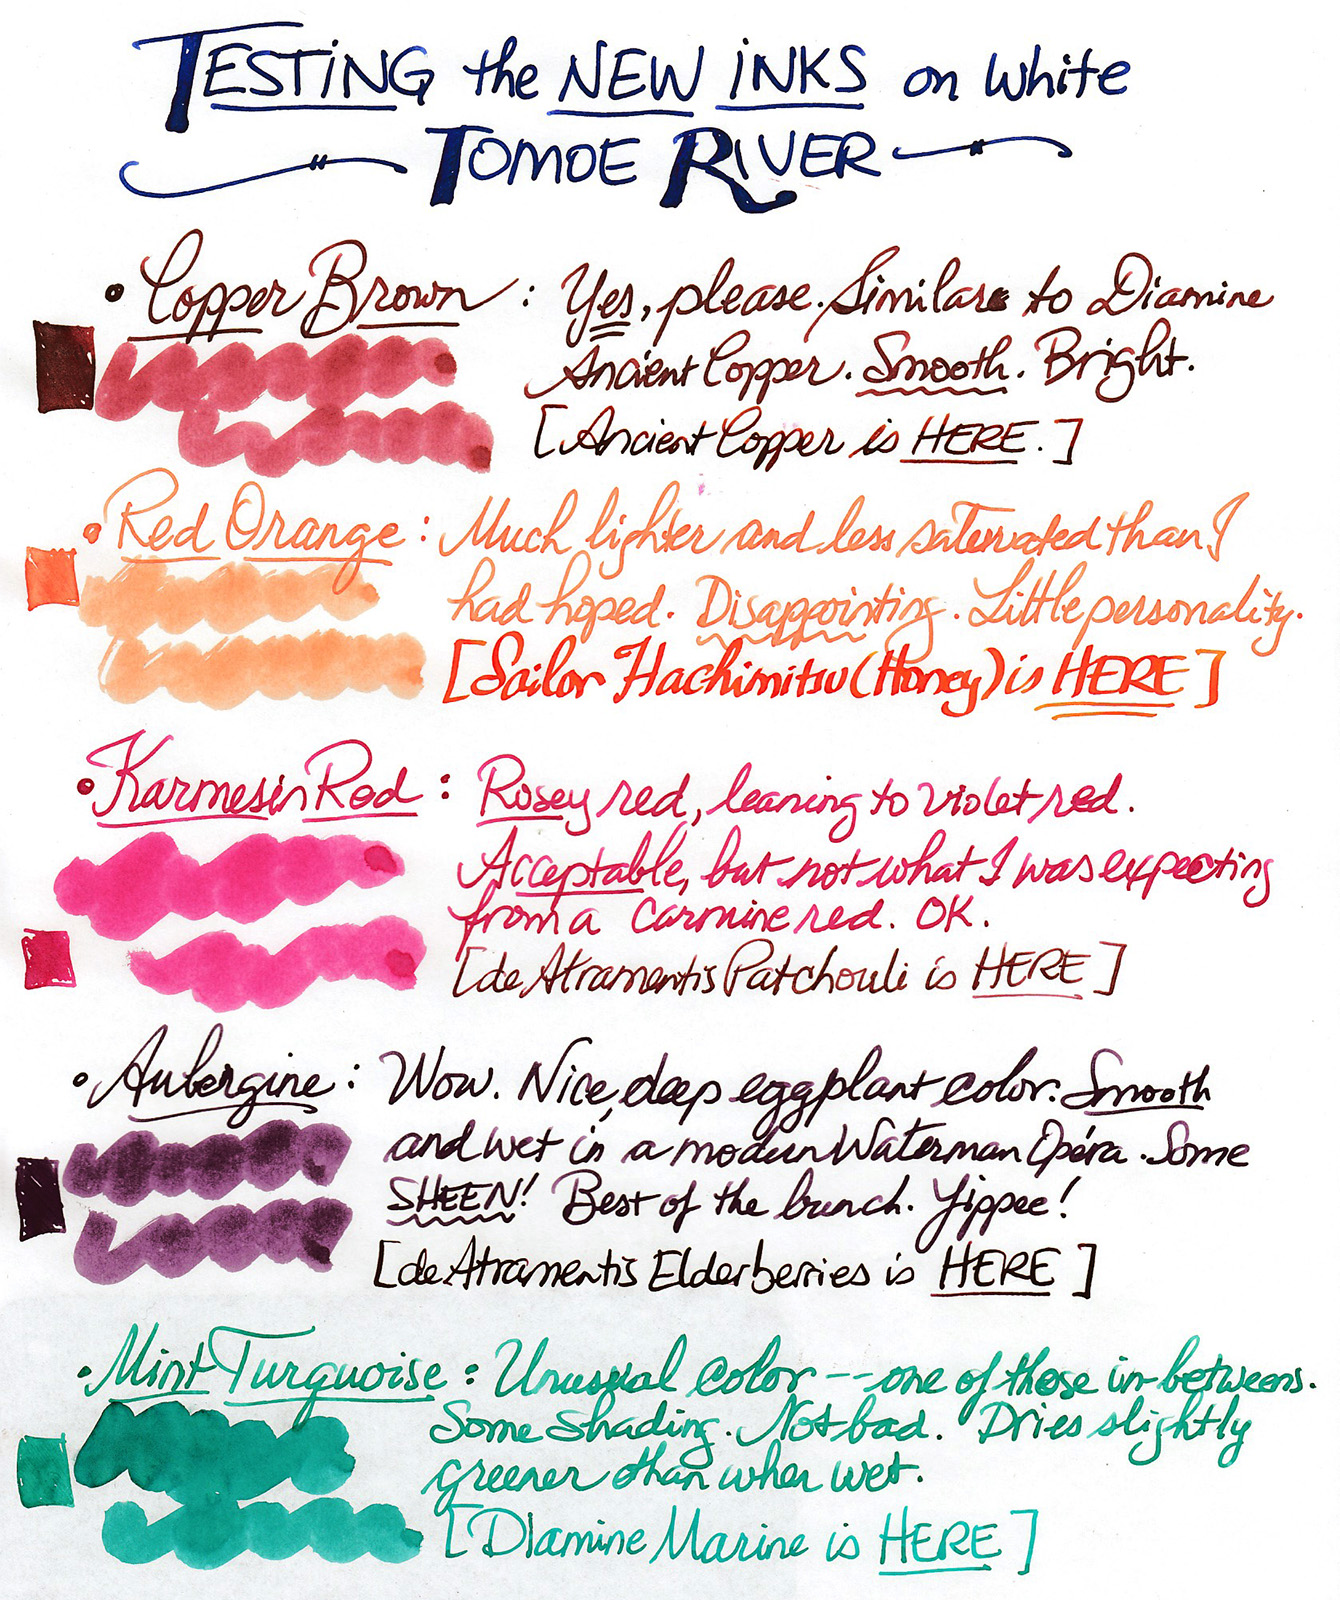 TESTING the NEW INKS on white
TOMOE RIVER
• Copper Brown : Yes, please. Similar to Diamine
Ancient Copper. Smooth. Bright.
[Ancient Copper is HERE.]
• Red Orange : Much lighter and less saturated than I
had hoped. Disappointing. Little personality.
[Sailor Hachimitsu (Honey) is HERE]
• Karmesin Red : Rosey red, leaning to violet red.
Acceptable, but not what I was expecting
from a carmine red. OK.
[de Atramentis Patchouli is HERE]
• Aubergine : Wow. Nice, deep eggplant color. Smooth
and wet in a modern Waterman Opéra. Some
SHEEN! Best of the bunch. Yippee!
[de Atramentis Elderberries is HERE]
• Mint Turquoise : Unusual color -- one of those in-betweens.
Some shading. Not bad. Dries slightly
greener than when wet.
[Diamine Marine is HERE]